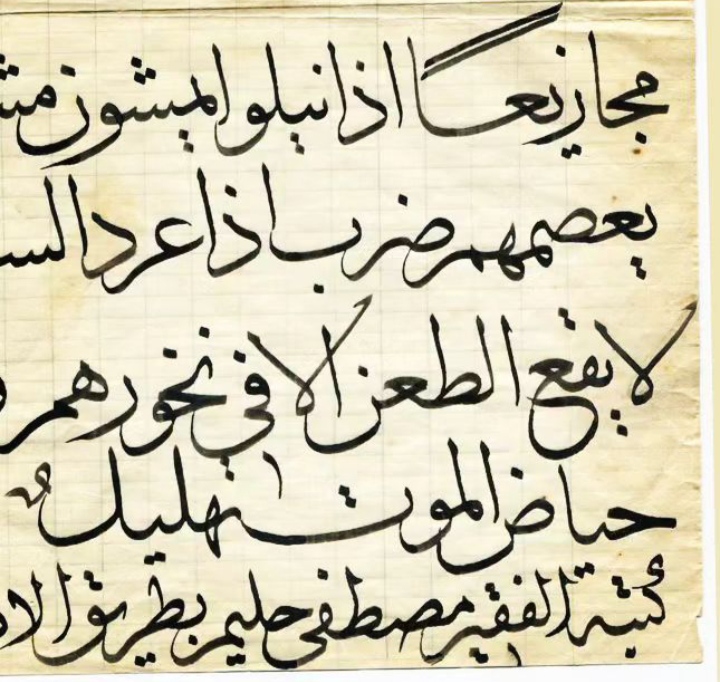 مجازيعًا اذا نيلوا يمشون مش
يعصمهم ضرب اذا عرد الس
لا يقع الطعن الا في نحورهم و
حياض الموت تهليلٌ
كتبه الفقير مصطفى حليم بطريق الا